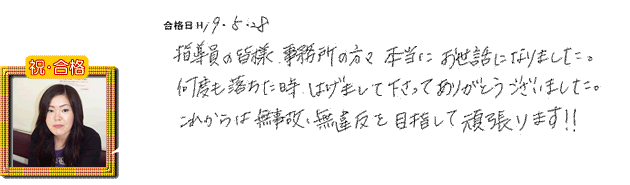 合格日 H19.5.28
祝・合格
指導員の皆様、事務所の方々 本当に お世話になりました。
何度も落ちた時、はげまして下さってありがとうございました。
これからは無事故、無違反を目指して頑張ります!!